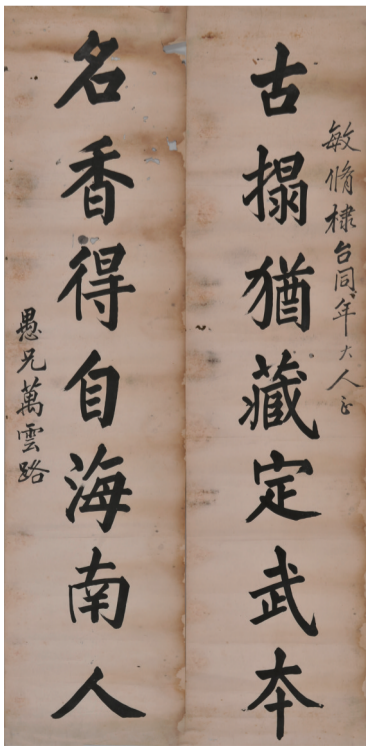 敏脩棣台同年大人正
古搨猶藏定武本
名香得自海南人
愚兄萬雲路